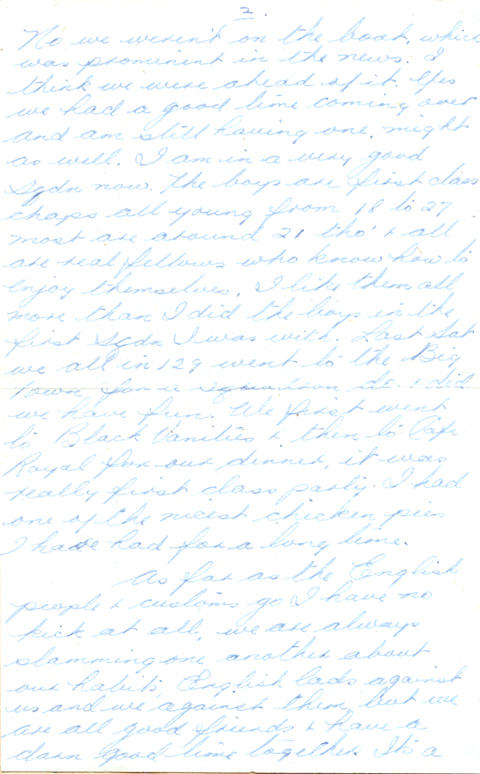 2.
No we weren't on the boat, which
was prominent in the news. I
think we were ahead of it. Yes
we had a good time coming over
and am still having one, might
as well. I am in a very good
Sqdn now. The boys are first class
chaps all young from 18 to 27
most are around 21 tho' & all
are real fellows who know how to
enjoy themselves. I like them all
more than I did the boys in the
first Sqdn I was with. Last Sat
we all in 129 went to the Big
Town for a & did
we have fun. We first went
to Black Vanities & then to Cafe
Royal for our dinner, it was
really first class party. I had
one of the nicest chicken pies
I have had for a long time.
As far as the English
people & customs go I have no
kick at all, we are always
slamming one another about
our habits, English lads against
us and we against them, but we
are all good friends & have a
darn good time together. It's a